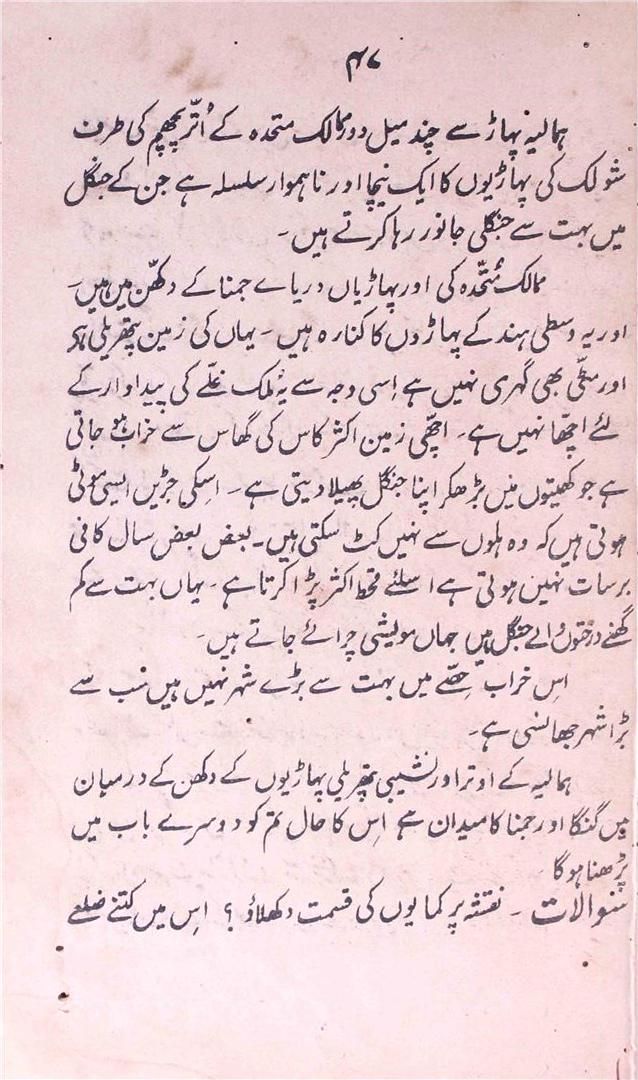 ۴۷
ہمالیہ پہاڑ سے چند میل دور ممالک متحدہ کے اُتّر پچھم کی طرف
شولک کی پہاڑیوں کا ایک نیچا اور ناہموار سلسلہ ہے جن کے جنگل
میں بہت سے جنگلی جانور رہا کرتے ہیں۔
ممالک مُتّحدہ کی اور پہاڑیاں دریاے جمنا کے دکھّن میں ہیں۔
اور یہ وسطی ہند کے پہاڑوں کا کنارہ ہیں۔ یہاں کی زمین پتھریلی ہے
اور مٹّی بھی گہری نہیں ہے اِسی وجہ سے یہ مُلک غلّے کی پیداوار کے
لئے اچھّا نہیں ہے۔ اچھّی زمین اکثر کاس کی گھاس سے خراب ہو جاتی
ہے جو کھیتوں میں بڑھکر اپنا جنگل پھیلا دیتی ہے۔ اسکی جڑیں ایسی موٹی
ہوتی ہیں کہ وہ ہلوں سے نہیں کٹ سکتی ہیں۔ بعض بعض سال کافی
برسات نہیں ہوتی ہے اسلئے قحط اکثر پڑا کرتا ہے۔ یہاں بہت سے کم
گھنے درختوں والے جنگل ہیں جہاں مویشی چرائے جاتے ہیں۔
اِس خراب حصّے میں بہت سے بڑے شہر نہیں ہیں سب سے
بڑا شہر جھانسی ہے۔
ہمالیہ کے اوتر اور نشیبی پتھریلی پہاڑیوں کے دکھن کے درمیان
میں گنگا اور جمنا کا میدان ہے اِس کا حال تم کو دوسرے باب میں
پڑھنا ہوگا
سوالات ۔ نقشہ پر کمایوں کی قسمت دکھلاؤ ؟ اِس میں کتنے ضلعے